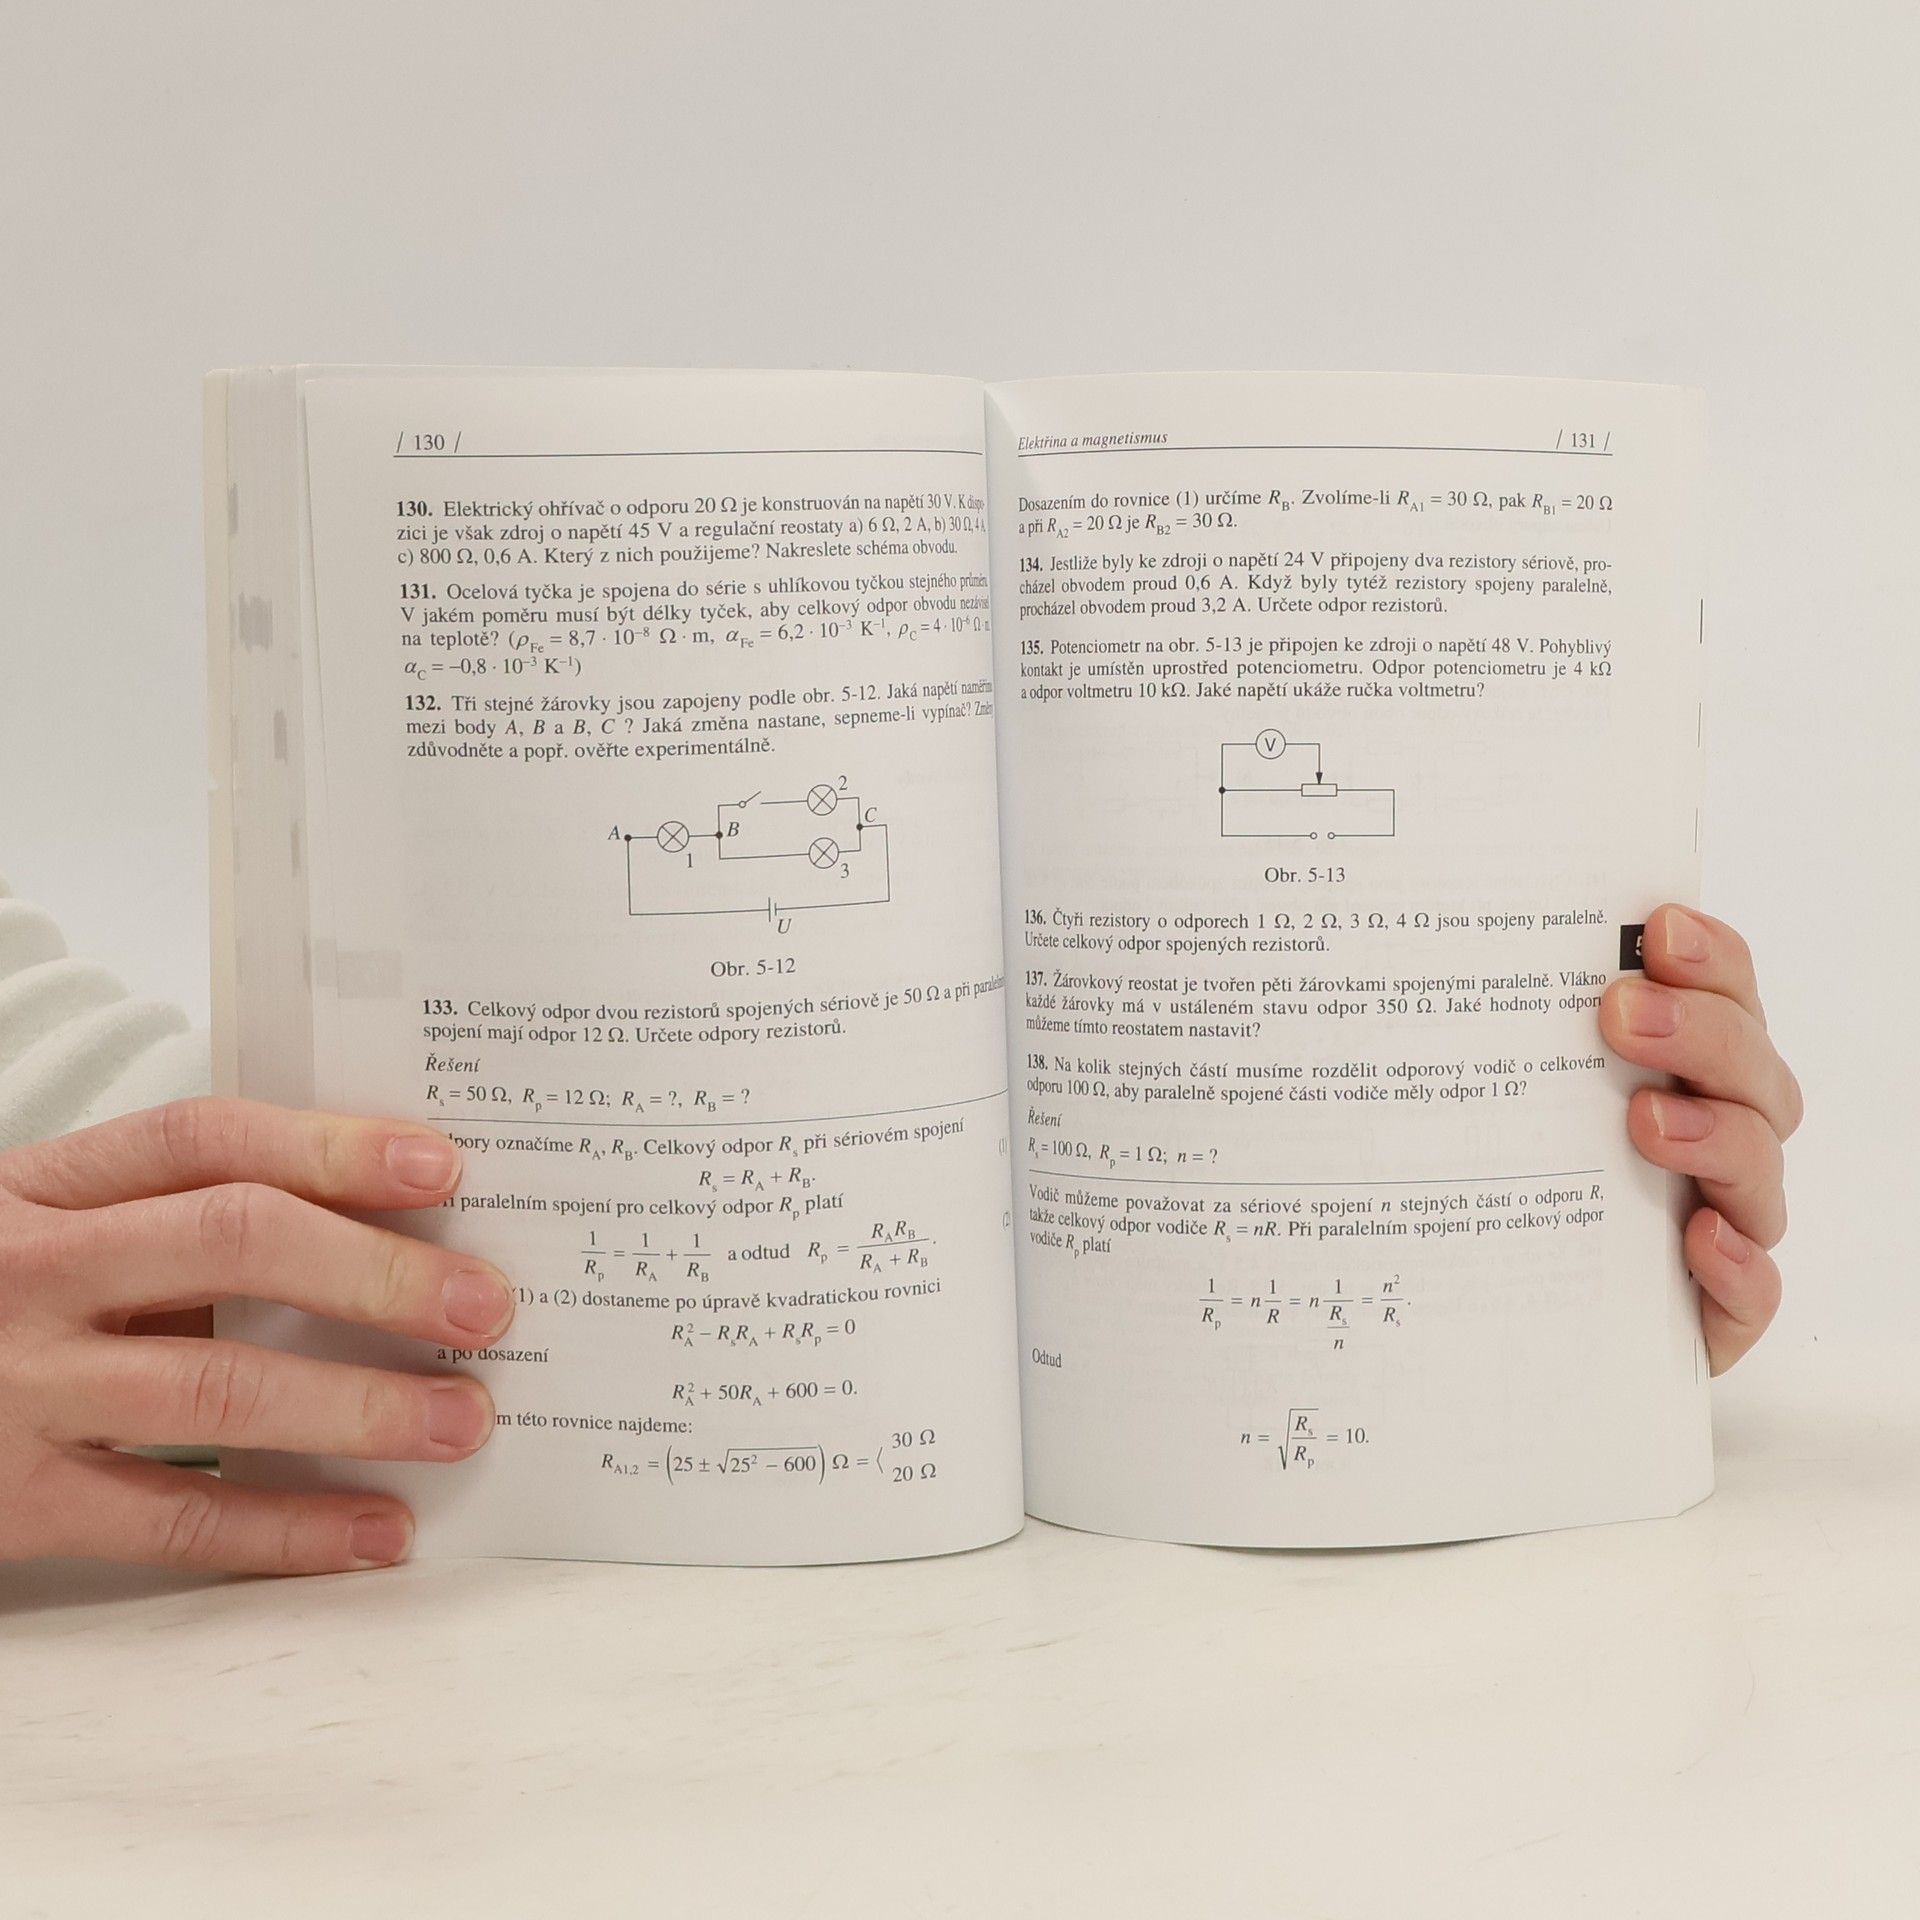 / 130 /
130. Elektrický ohřívač o odporu 20 Ω je konstruován na napětí 30 V. K dispo-
zici je však zdroj o napětí 45 V a regulační reostaty a) 6 Ω, 2 A, b) 30 Ω, 4 A,
c) 800 Ω, 0,6 A. Který z nich použijeme? Nakreslete schéma obvodu.
131. Ocelová tyčka je spojena do série s uhlíkovou tyčkou stejného průměru.
V jakém poměru musí být délky tyček, aby celkový odpor obvodu nezávisel
na teplotě? (ρFe = 8,7 · 10⁻⁸ Ω · m, αFe = 6,2 · 10⁻³ K⁻¹, ρC = 4 · 10⁻⁶ Ω · m
αC = –0,8 · 10⁻³ K⁻¹)
132. Tři stejné žárovky jsou zapojeny podle obr. 5-12. Jaká napětí naměříme
mezi body A, B a B, C ? Jaká změna nastane, sepneme-li vypínač?
zdůvodněte a popř. ověřte experimentálně.
2
A B C
1
3
U
Obr. 5-12
133. Celkový odpor dvou rezistorů spojených sériově je 50 Ω a při
spojení mají odpor 12 Ω. Určete odpory rezistorů.
Řešení
Rs = 50 Ω, Rp = 12 Ω; RA = ?, RB = ?
označíme RA, RB. Celkový odpor Rs při sériovém spojení
Rs = RA + RB. (1)
paralelním spojení pro celkový odpor Rp platí
1/Rp = 1/RA + 1/RB a odtud Rp = RARB/(RA + RB). (2)
(1) a (2) dostaneme po úpravě kvadratickou rovnici
RA² – RsRA + RsRp = 0
a po dosazení
RA² + 50RA + 600 = 0.
této rovnice najdeme:
RA1,2 = (25 ± √(25² – 600)) Ω = ⟨ 30 Ω
20 Ω
Elektřina a magnetismus / 131 /
Dosazením do rovnice (1) určíme RB. Zvolíme-li RA1 = 30 Ω, pak RB1 = 20 Ω
a při RA2 = 20 Ω je RB2 = 30 Ω.
134. Jestliže byly ke zdroji o napětí 24 V připojeny dva rezistory sériově, pro-
cházel obvodem proud 0,6 A. Když byly tytéž rezistory spojeny paralelně,
procházel obvodem proud 3,2 A. Určete odpor rezistorů.
135. Potenciometr na obr. 5-13 je připojen ke zdroji o napětí 48 V. Pohyblivý
kontakt je umístěn uprostřed potenciometru. Odpor potenciometru je 4 kΩ
a odpor voltmetru 10 kΩ. Jaké napětí ukáže ručka voltmetru?
V
Obr. 5-13
136. Čtyři rezistory o odporech 1 Ω, 2 Ω, 3 Ω, 4 Ω jsou spojeny paralelně.
Určete celkový odpor spojených rezistorů.
5
137. Žárovkový reostat je tvořen pěti žárovkami spojenými paralelně. Vlákno
každé žárovky má v ustáleném stavu odpor 350 Ω. Jaké hodnoty odporu
můžeme tímto reostatem nastavit?
138. Na kolik stejných částí musíme rozdělit odporový vodič o celkovém
odporu 100 Ω, aby paralelně spojené části vodiče měly odpor 1 Ω?
Řešení
Rs = 100 Ω, Rp = 1 Ω; n = ?
Vodič můžeme považovat za sériové spojení n stejných částí o odporu R,
takže celkový odpor vodiče Rs = nR. Při paralelním spojení pro celkový odpor
vodiče Rp platí
1/Rp = n 1/R = n 1/(Rs/n) = n²/Rs.
Odtud
n = √(Rs/Rp) = 10.